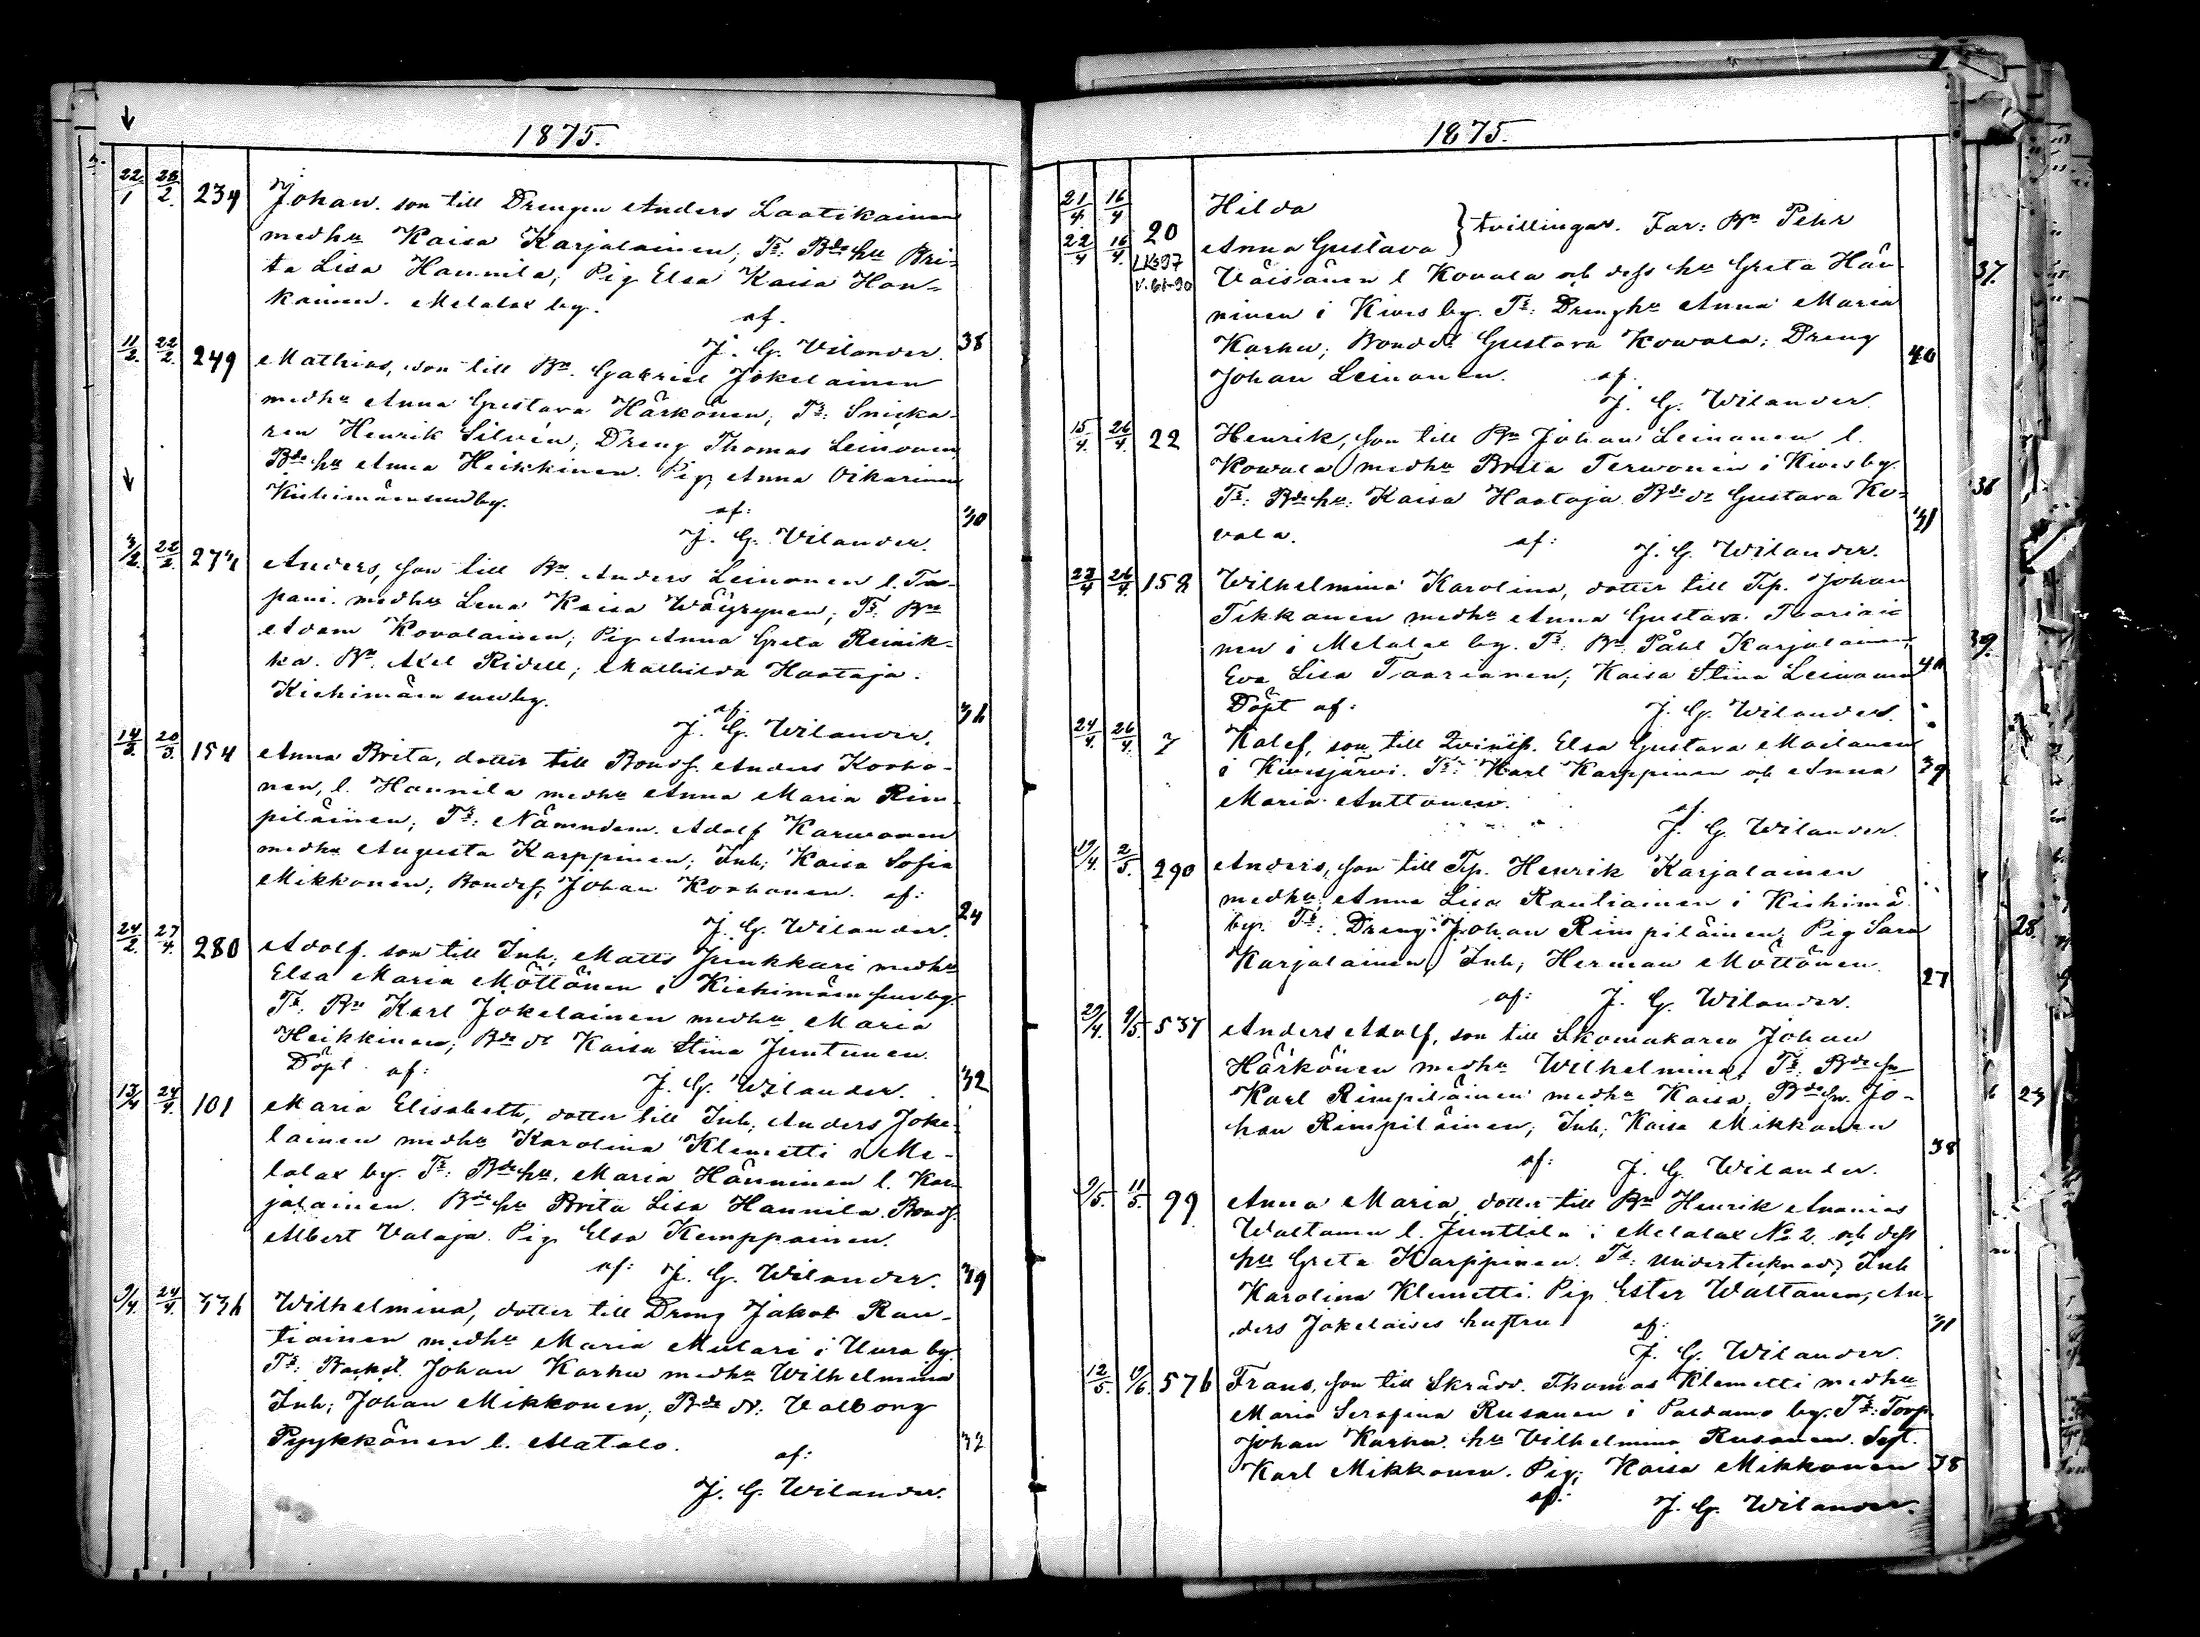 1875.
22/1 28/2. 239 Johan. son till Drengen Anders Laatikainen
medhu Kaisa Karjalainen; Ts: Bdehu Bri-
ta Lisa Hannila; Pig Elsa Kaisa Hon-
kainen. Melalax by.
af.
J. G. Vilander. 38
11/2. 22/2. 249 Mathias, son till Bn. Gabriel Jokelainen
medhu Anna Gustava Härkönen; Ts: Snicka-
ren Henrik Silvén; Dreng Thomas Leinonen,
Bde hu Anna Heikkinen. Pig. Anna Oikarinen
Kiehimäensuu by.
af: 30
J. G. Vilander.
3/2. 22/2. 274 Anders, son till Bn. Anders Leinonen l. Ta-
pani. medhu Lena Kaisa Wäyrynen; Ts: Bn
Adam Kovalainen; Pig Anna Greta Reinik-
ka. Bn. Axel Ridell; Mathilda Haataja.
Kiehimäensuu by.
af. 36
J. G. Wilander.
14/3. 20/3. 154 Anna Brita, dotter till Bonds. Anders Korho-
nen, l. Hannila medhu Anna Maria Rim-
piläinen; Ts: Nämndem. Adolf Karvonen
medhu Augusta Karppinen; Inh; Kaisa Sofia
Mikkonen; Bondes; Johan Korhonen. af:
24
J. G. Wilander.
24/2. 27/4. 280 Adolf. son till Inh; Matts Pinkkari medhu
Elsa Maria Möttönen i Kiehimäensuu by.
Ts: Bn Karl Jokelainen medhu Maria
Heikkinen; Bde dr Kaisa Stina Juntunen.
Döpt af:
J. G. Wilander. 32
13/4 24/4. 101 Maria Elisabeth, dotter till Inh; Anders Joke-
lainen medhu Karolina Klemetti i Me-
lalax by. Ts: Bdehu. Maria Hänninen l. Kar-
jalainen. Bdehu Brita Lisa Hannila. Bonds.
Albert Valaja. Pig Elsa Kemppainen.
af: J. G. Wilander. 39
9/4. 24/4. 336 Wilhelmina, dotter till Dreng Jakob Rau-
tiainen medhu Maria Mulari i Uura by.
Ts: Backst. Johan Karhu medhu Wilhelmina
Inh; Johan Mikkonen; Bde dr: Valborg
Pyykkönen l. Matalo. 37
af:
J. G. Wilander.
1875.
21/4. 16/4 Hilda
20 } tvillingar. Far: Bn Pehr
22/4 16/4. Anna Gustava
Väisänen l Kovala och dess hu Greta Hän-
ninen i Kives by. Ts: Drenghu Anna Maria
Karhu; Bondd: Gustava Kowala; Dreng
Johan Leinonen. af. 40
J. G. Wilander.
15/4. 26/4. 22 Henrik, son till Bn Johan Leinonen l.
Kowala medhu Brita Terwonen i Kives by.
Ts: Bdehu: Kaisa Haataja. Bde dr Gustava Ko-
vala. af: J. G. Wilander. 31
23/4 26/4. 158 Wilhelmina Karolina, dotter till Tp. Johan
Tikkanen medhu Anna Gustava Taariai-
nen i Melalax by. Ts: Bn Påhl Karjalainen,
Eva Lisa Taarianen; Kaisa Stina Leinonen
Döpt af: J. G. Wilander.
24/4. 26/4. 7 Kalef, son till Qvinsp. Elsa Gustava Moilanen
i Kivesjärvi. Ts: Karl Karppinen och Anna 39
Maria Anttonen. af.
J. G. Wilander.
19/4. 2/5. 290 Anders, son till Tp. Henrik Karjalainen
medhu Anna Lisa Rautiainen i Kiehimä
by. Ts: Dreng: Johan Rimpiläinen; Pig Sara
Karjalainen; Inh; Herman Möttönen.
af: J. G. Wilander. 27
29/4. 9/5. 537 Anders Adolf, son till Skomakaren Johan
Härkönen medhu Wilhelmina; Ts: Bdes
Karl Rimpiläinen medhu Kaisa, Bdes. Jo-
han Rimpiläinen; Inh; Kaisa Mikkonen
af: J. G. Wilander. 38
9/5. 11/5. 99 Anna Maria, dotter till Bn Henrik Ananias
Waltanen l. Junttila i Melalax No 2. och dess
hu Greta Karppinen. Ts: Undertecknad; Inh
Karolina Klemetti. Pig Ester Waltanen; An-
ders Jokelaises hustru af: 31
J. G. Wilander.
12/5. 9/6. 576 Frans, son till Skrädd. Thomas Klemetti medhu
Maria Serafina Rusanen i Paldamo by. Ts: Torp.
Johan Karhu. hu Vilhelmina Rusanen. Sgt.
Karl Mikkonen. Pig; Kaisa Mikkonen 38
af: J. G. Wilander.
37.
38
39.
28.
23